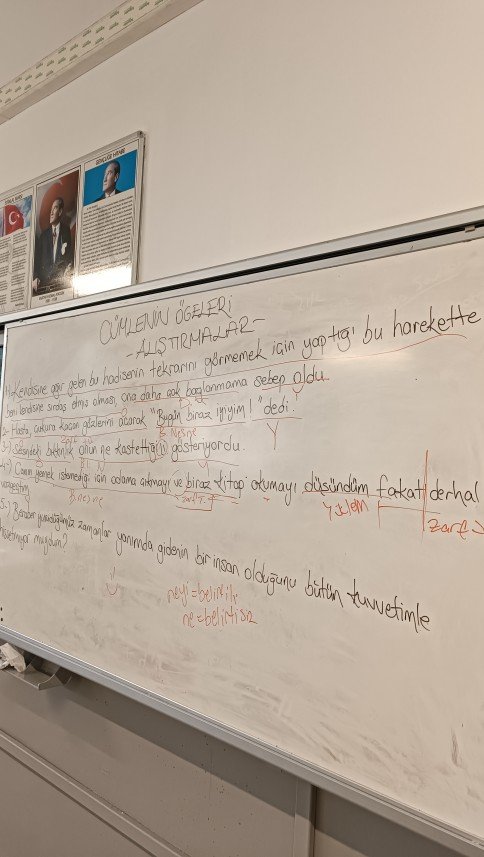 GENÇLİĞE HİTABE
CÜMLENİN ÖGELERİ
-ALIŞTIRMALAR-
1-) Kendisine ağır gelen bu hadisenin tekrarını görmemek için yaptığı bu harekette
beni kendisine sırdaş etmiş olması, ona daha çok bağlanmama sebep oldu.
Y
2- Hasta, çukura kaçan gözlerini açarak "Bugün biraz iyiyim!" dedi.
B. Nesne Y
3-) Sesindeki onun ne kastettiğini gösteriyordu.
4-) Canım yemek istemediği için odama çıkmayı ve biraz kitap okumayı düşündüm fakat derhal
vazgeçtim.
B. nesne Yüklem zarf
5-) Beraber yürüdüğümüz zamanlar yanımda gidenin bir insan olduğunu bütün kuvvetimle
muydum?
neyi=belirtili
ne=belirtisiz